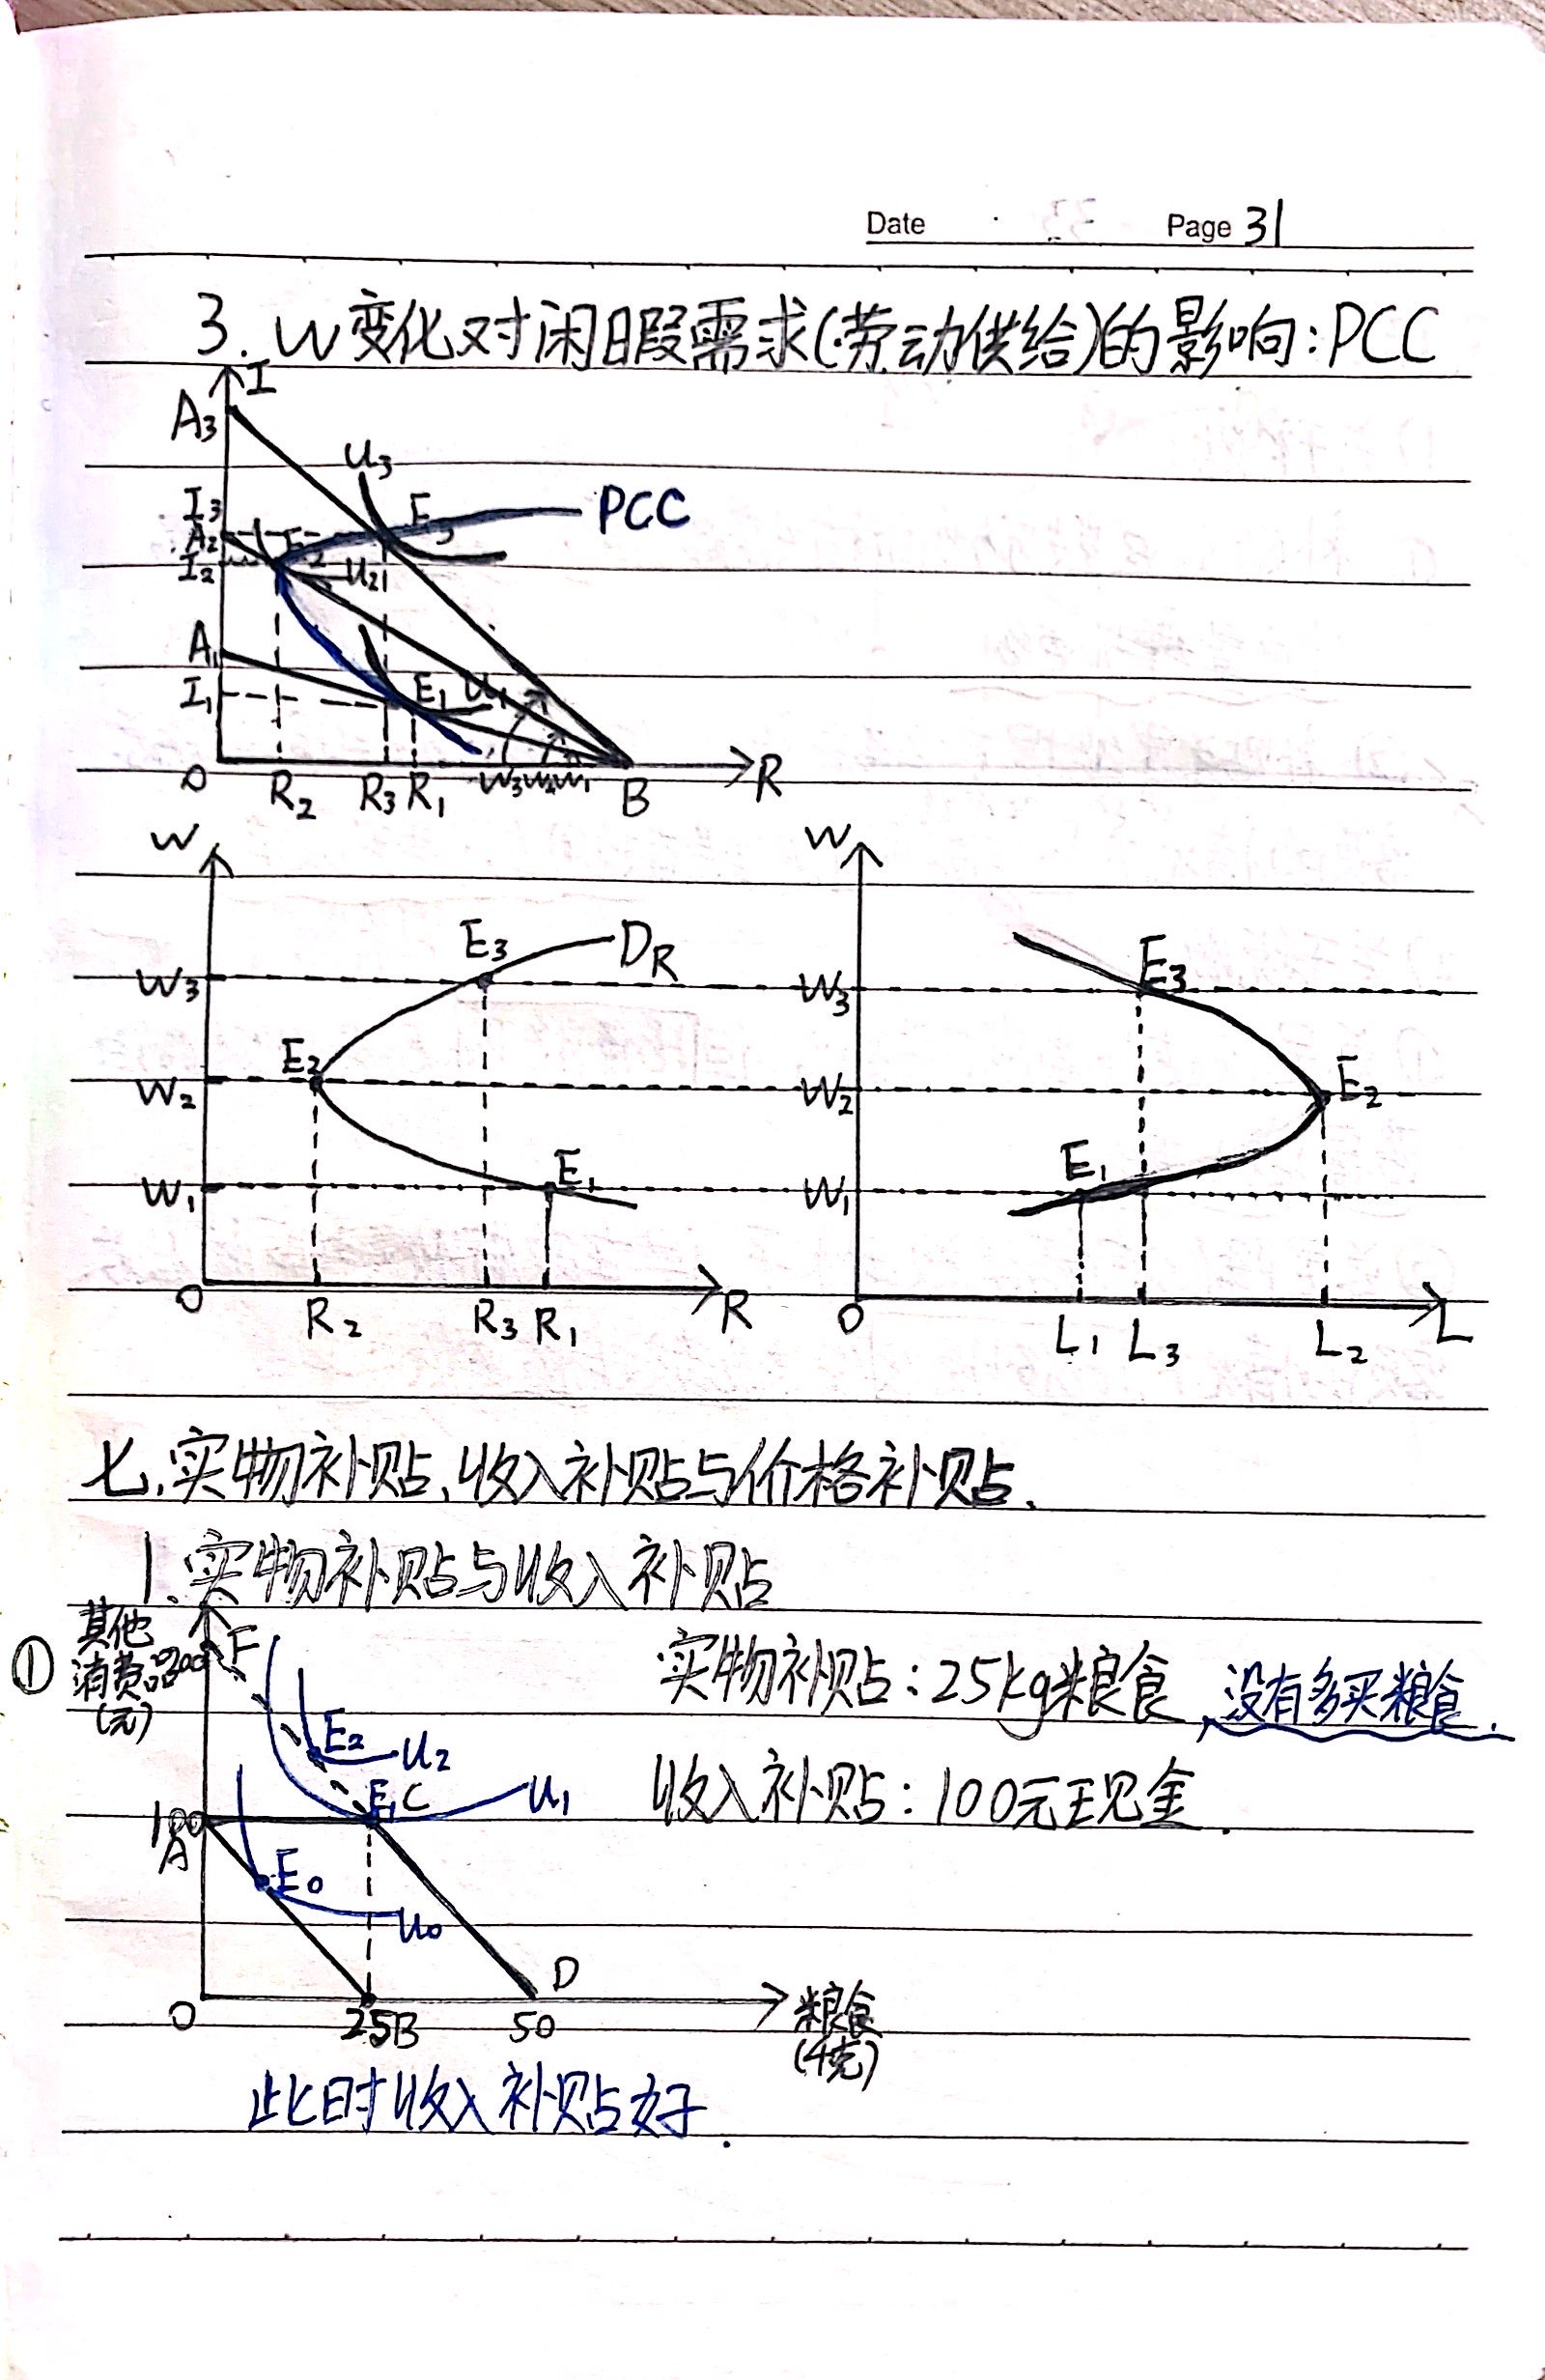 Date Page 31
3. W变化对闲暇需求(劳动供给)的影响:PCC
I
A3
U3
I3 E3 PCC
A2 E2
I2 U2
A1
I1 E1 U1
O R2 R3 R1 W3 W2 W1 B R
W W
E3 DR E3
W3 W3
E2 E2
W2 W2
E1 E1
W1 W1
O R2 R3 R1 R O L1 L3 L2 L
七.实物补贴、收入补贴与价格补贴.
1.实物补贴与收入补贴
① 其他消费品(元) 200 F
实物补贴:25kg粮食,没有多买粮食.
E2 U2
收入补贴:100元现金.
100 E1 C U1
A
E0
U0
D
O 25B 50 粮食(千克)
此时收入补贴好.